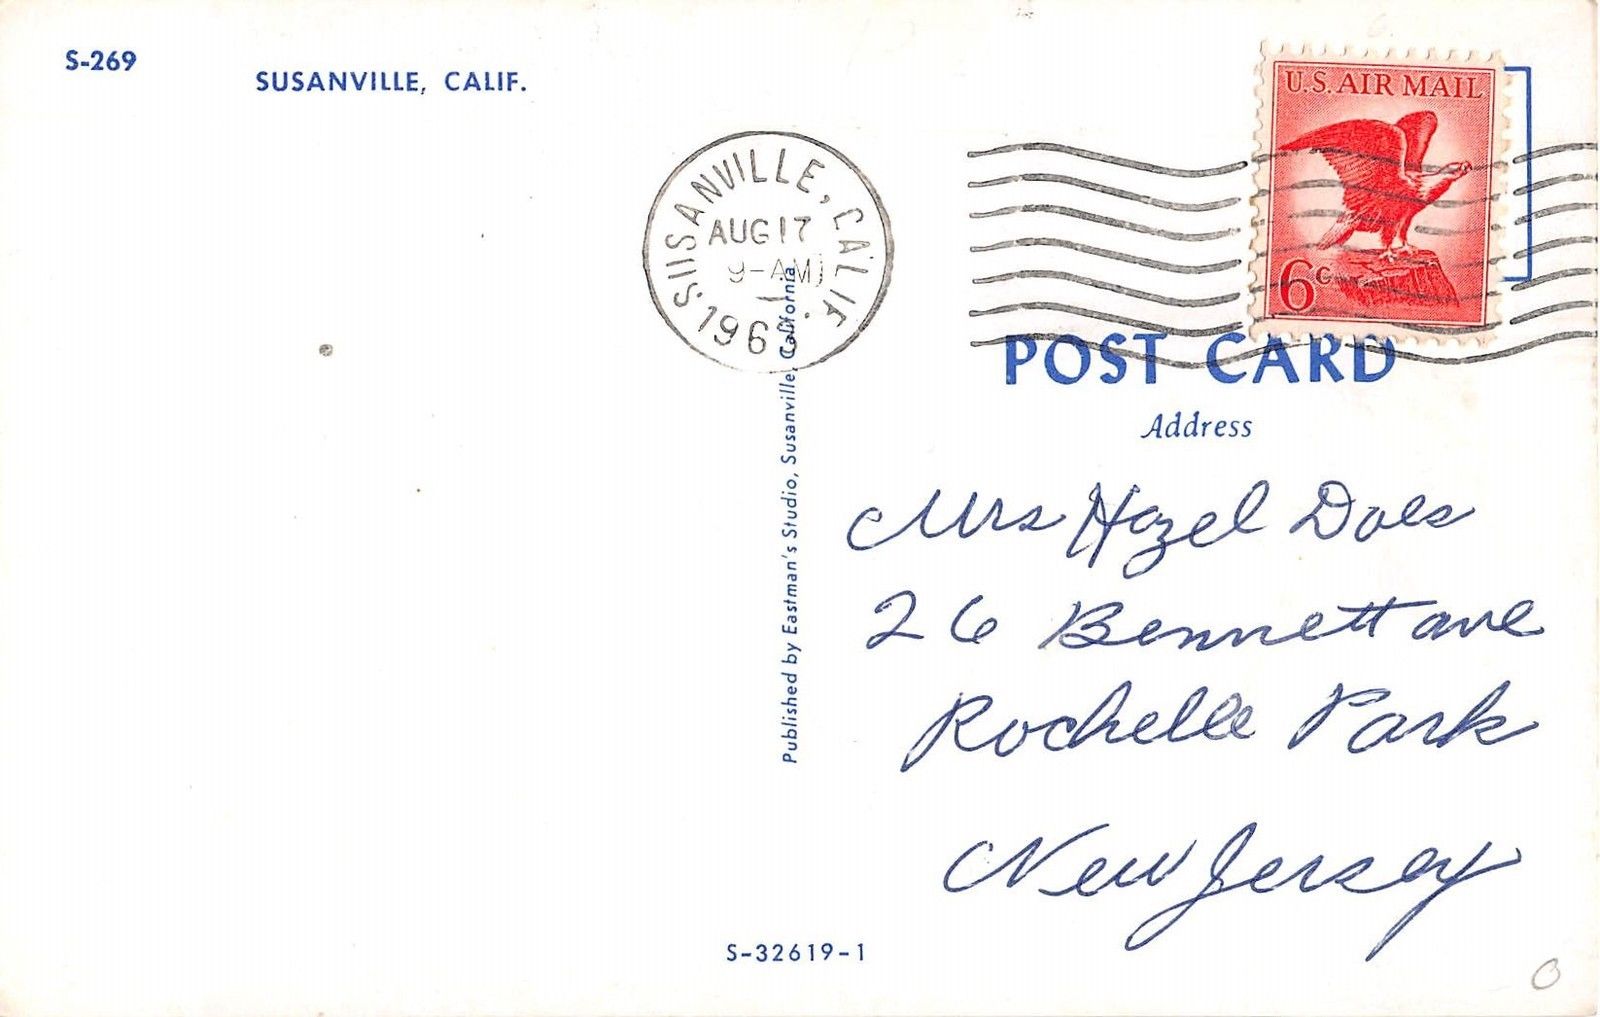 S-269
SUSANVILLE, CALIF.
U.S. AIR MAIL
6c
SUSANVILLE, CALIF.
AUG 17
9-AM
POST CARD
Address
Published by Eastman's Studio, Susanville, California
Mrs Hazel Does
26 Bennett ave
Rochelle Park
New Jersey
S-32619-1